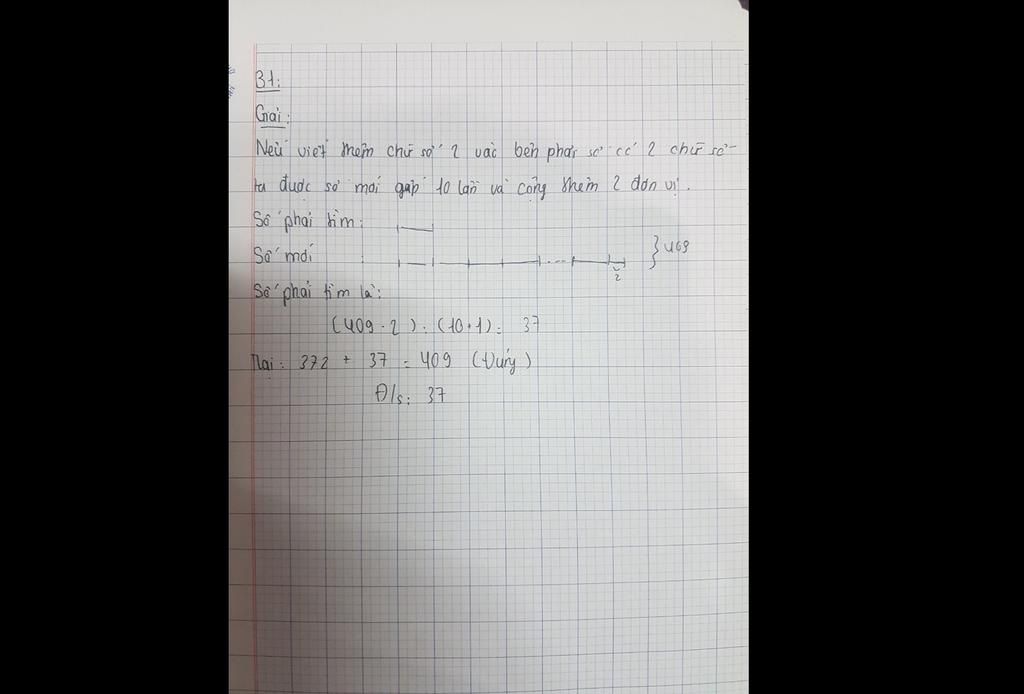 B1:
Giải:
Nếu viết thêm chữ số 2 vào bên phải số có 2 chữ số
ta được số mới gấp 10 lần và cộng thêm 2 đơn vị.
Số phải tìm:
Số mới :
409
2
Số phải tìm là:
(409 - 2) : (10 + 1) = 37
372 + 37 = 409 (Đúng)
Đ/s: 37